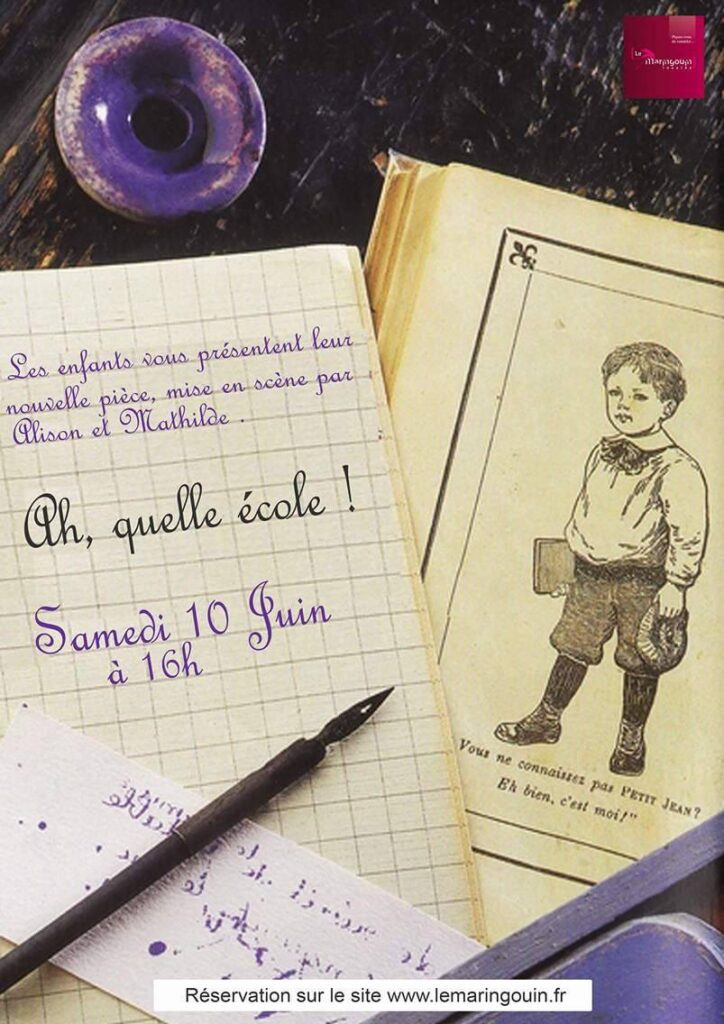 Le
Maringouin
Les enfants vous présentent leur
nouvelle pièce, mise en scène par
Alison et Mathilde .
Ah, quelle école !
Samedi 10 Juin
à 16h
Vous ne connaissez pas PETIT JEAN?
Eh bien, c'est moi!"
Réservation sur le site www.lemaringouin.fr